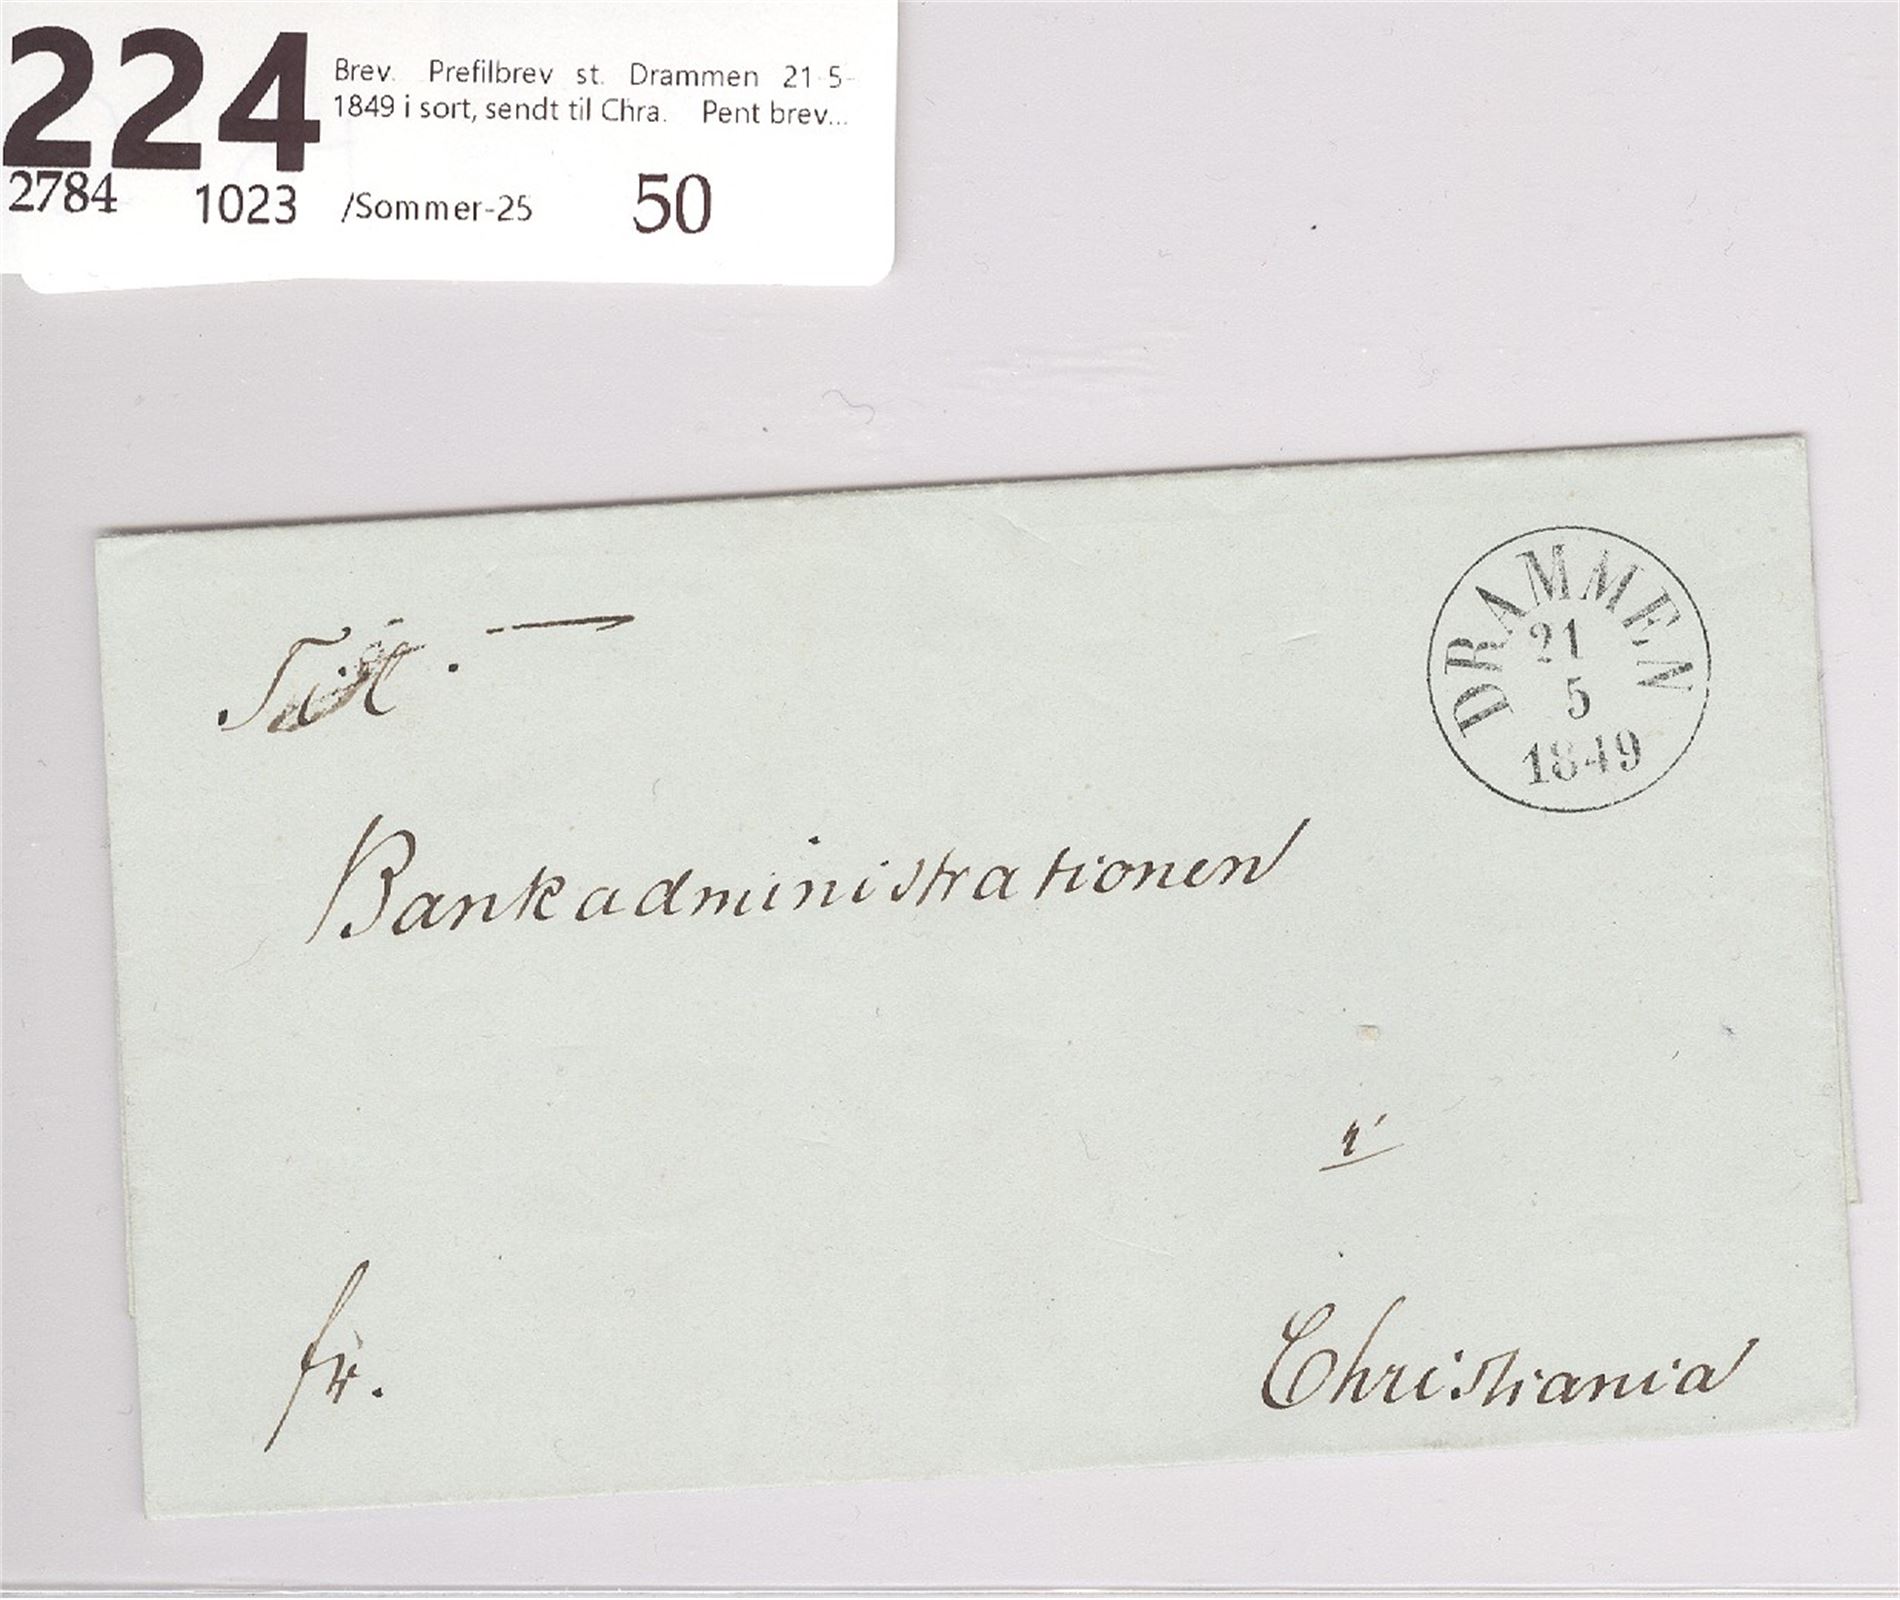 224
Brev. Prefilbrev st. Drammen 21-5-
1849 i sort, sendt til Chra. Pent brev...
2784 1023 /Sommer-25 50
DRAMMEN
21
5
1849
Tit.
Bankadministrationen
i
fr.
Christiania